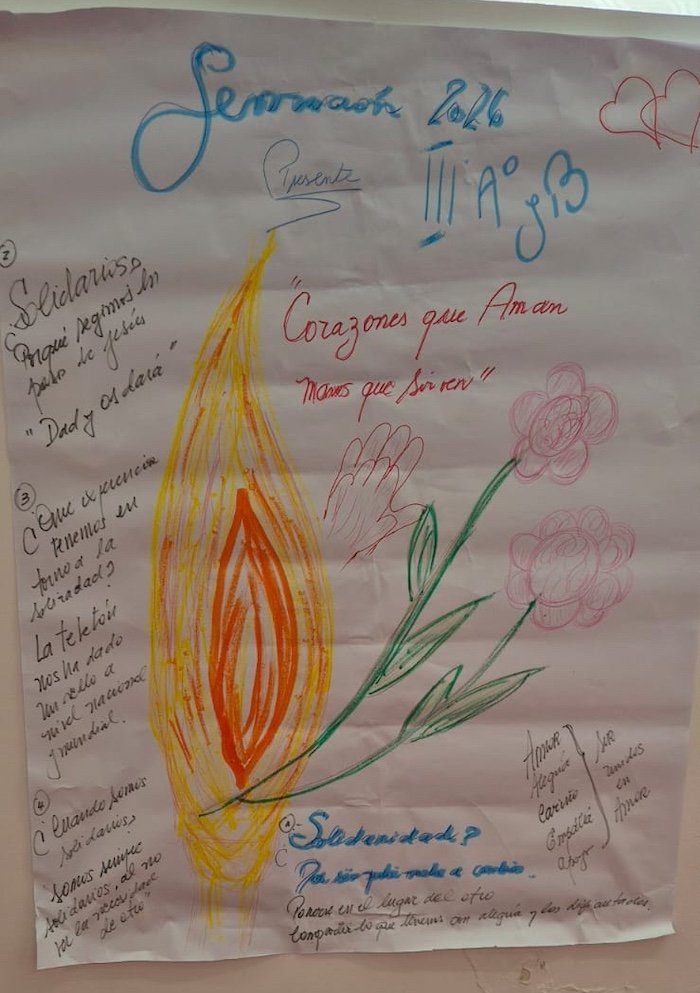 Semmación 2026
Presente
III A° y B
"Corazones que Aman
manos que sirven"
②
¿Solidarios,
Porqué seguimos en
paso de Jesús
"Dad y os dará"
③
¿Que experiencia
tenemos en
torno a la
solidadad?
La teletón
nos ha dado
un sello a
nivel nacional
y mundial.
④
¿Cuando somos
solidarios,
somos
solidarios, al
en la necesidad
de otro"
①
¿Solidaridad?
Dar sin pedir nada a cambio.
Ponerse en el lugar del otro
Compartir lo que tenemos con alegría y los
Amor
Alegría
Cariño
Empatía
Apoyo
Ser
unidos
en
Amor